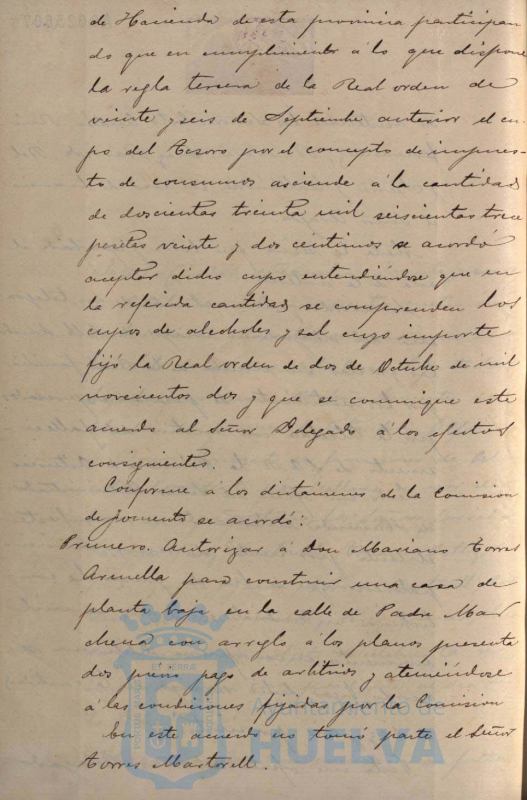 de Hacienda de esta provincia participan
do que en cumplimiento á lo que dispone
la regla tercera de la Real orden de
veinte y seis de Septiembre anterior el cu-
po del Tesoro por el concepto de impues-
to de consumos asciende á la cantidad
de doscientas treinta mil seiscientas trece
pesetas veinte y dos céntimos se acordó
aceptar dicho cupo entendiéndose que en
la referida cantidad se comprenden los
cupos de alcoholes y sal cuyo importe
fijó la Real orden de dos de Octubre de mil
novecientos dos y que se comunique este
acuerdo al Señor Delegado á los efectos
consiguientes.
Conforme á los dictámenes de la Comision
de fomento se acordó:
Primero. Autorizar á Don Mariano Torres
para construir una casa de
planta baja en la calle de Padre Mar
chena con arreglo á los planos presenta
dos previo pago de arbitrios y ateniéndose
á las condiciones fijadas por la Comision
En este acuerdo no tomó parte el Señor
Torres Martorell.
Ayuntamiento de
HUELVA